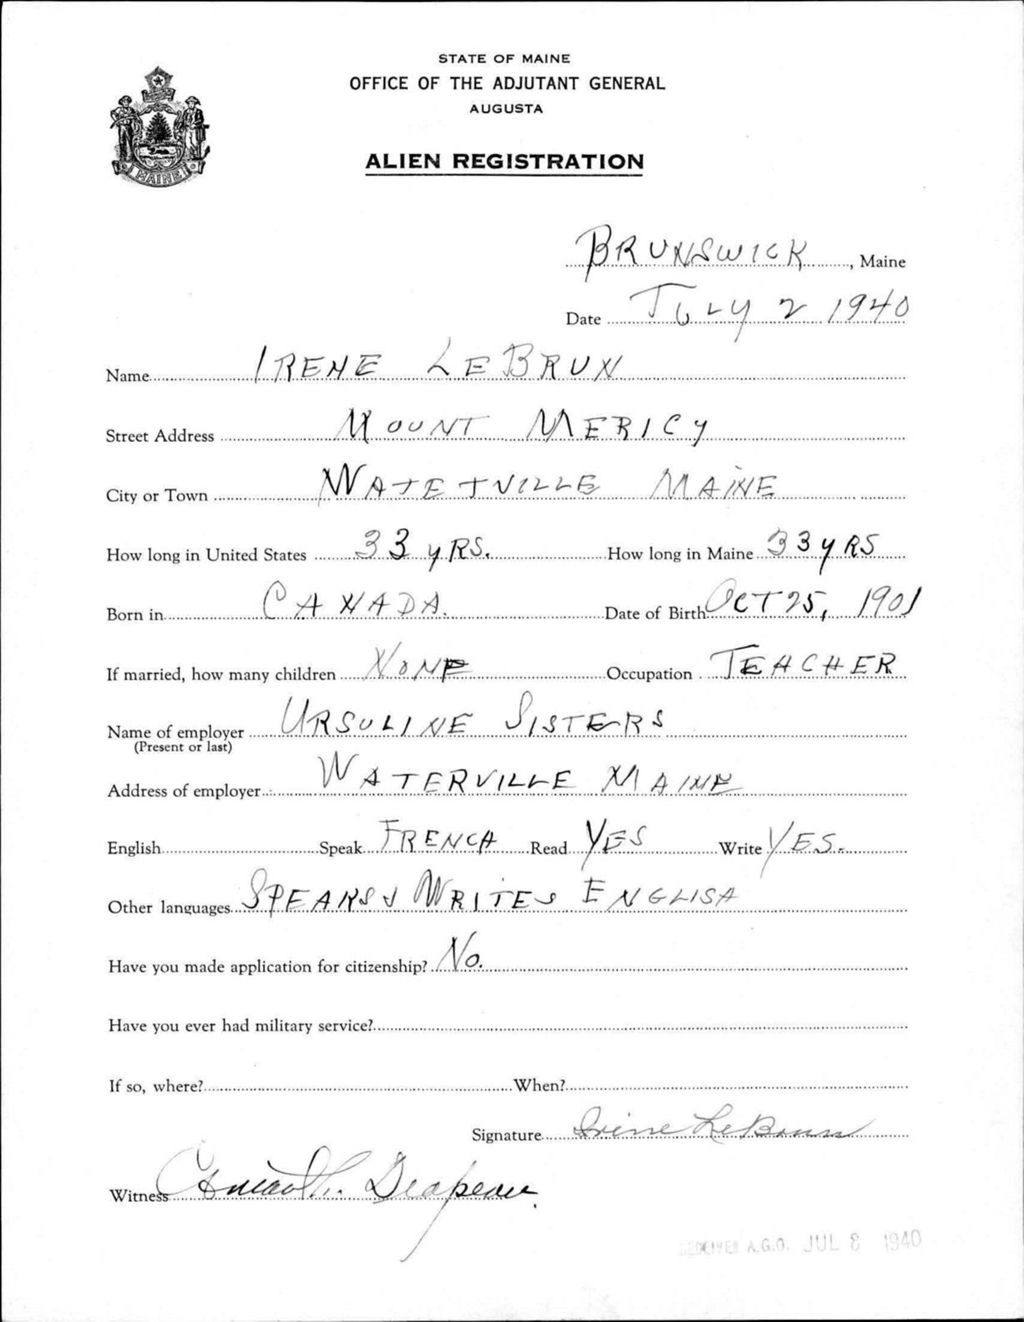 STATE OF MAINE
OFFICE OF THE ADJUTANT GENERAL
AUGUSTA
MAINE
ALIEN REGISTRATION
BRUNSWICK, Maine
Date JULY 2 1940
Name IRENE LEBRUN
Street Address MOUNT MERICY
City or Town WATETVILLE MAINE
How long in United States 33 yRS. How long in Maine 33 yRS
Born in CANADA. Date of Birth OCT 25, 1901
If married, how many children NONE Occupation TEACHER
Name of employer URSULINE SISTERS
(Present or last)
Address of employer WATERVILLE MAINE
English Speak FRENCH Read YES Write YES.
Other languages SPEAKS & WRITES ENGLISH
Have you made application for citizenship? No.
Have you ever had military service?
If so, where? When?
Signature Irène LeBrun
Witness
RECEIVED A.G.O. JUL 8 1940